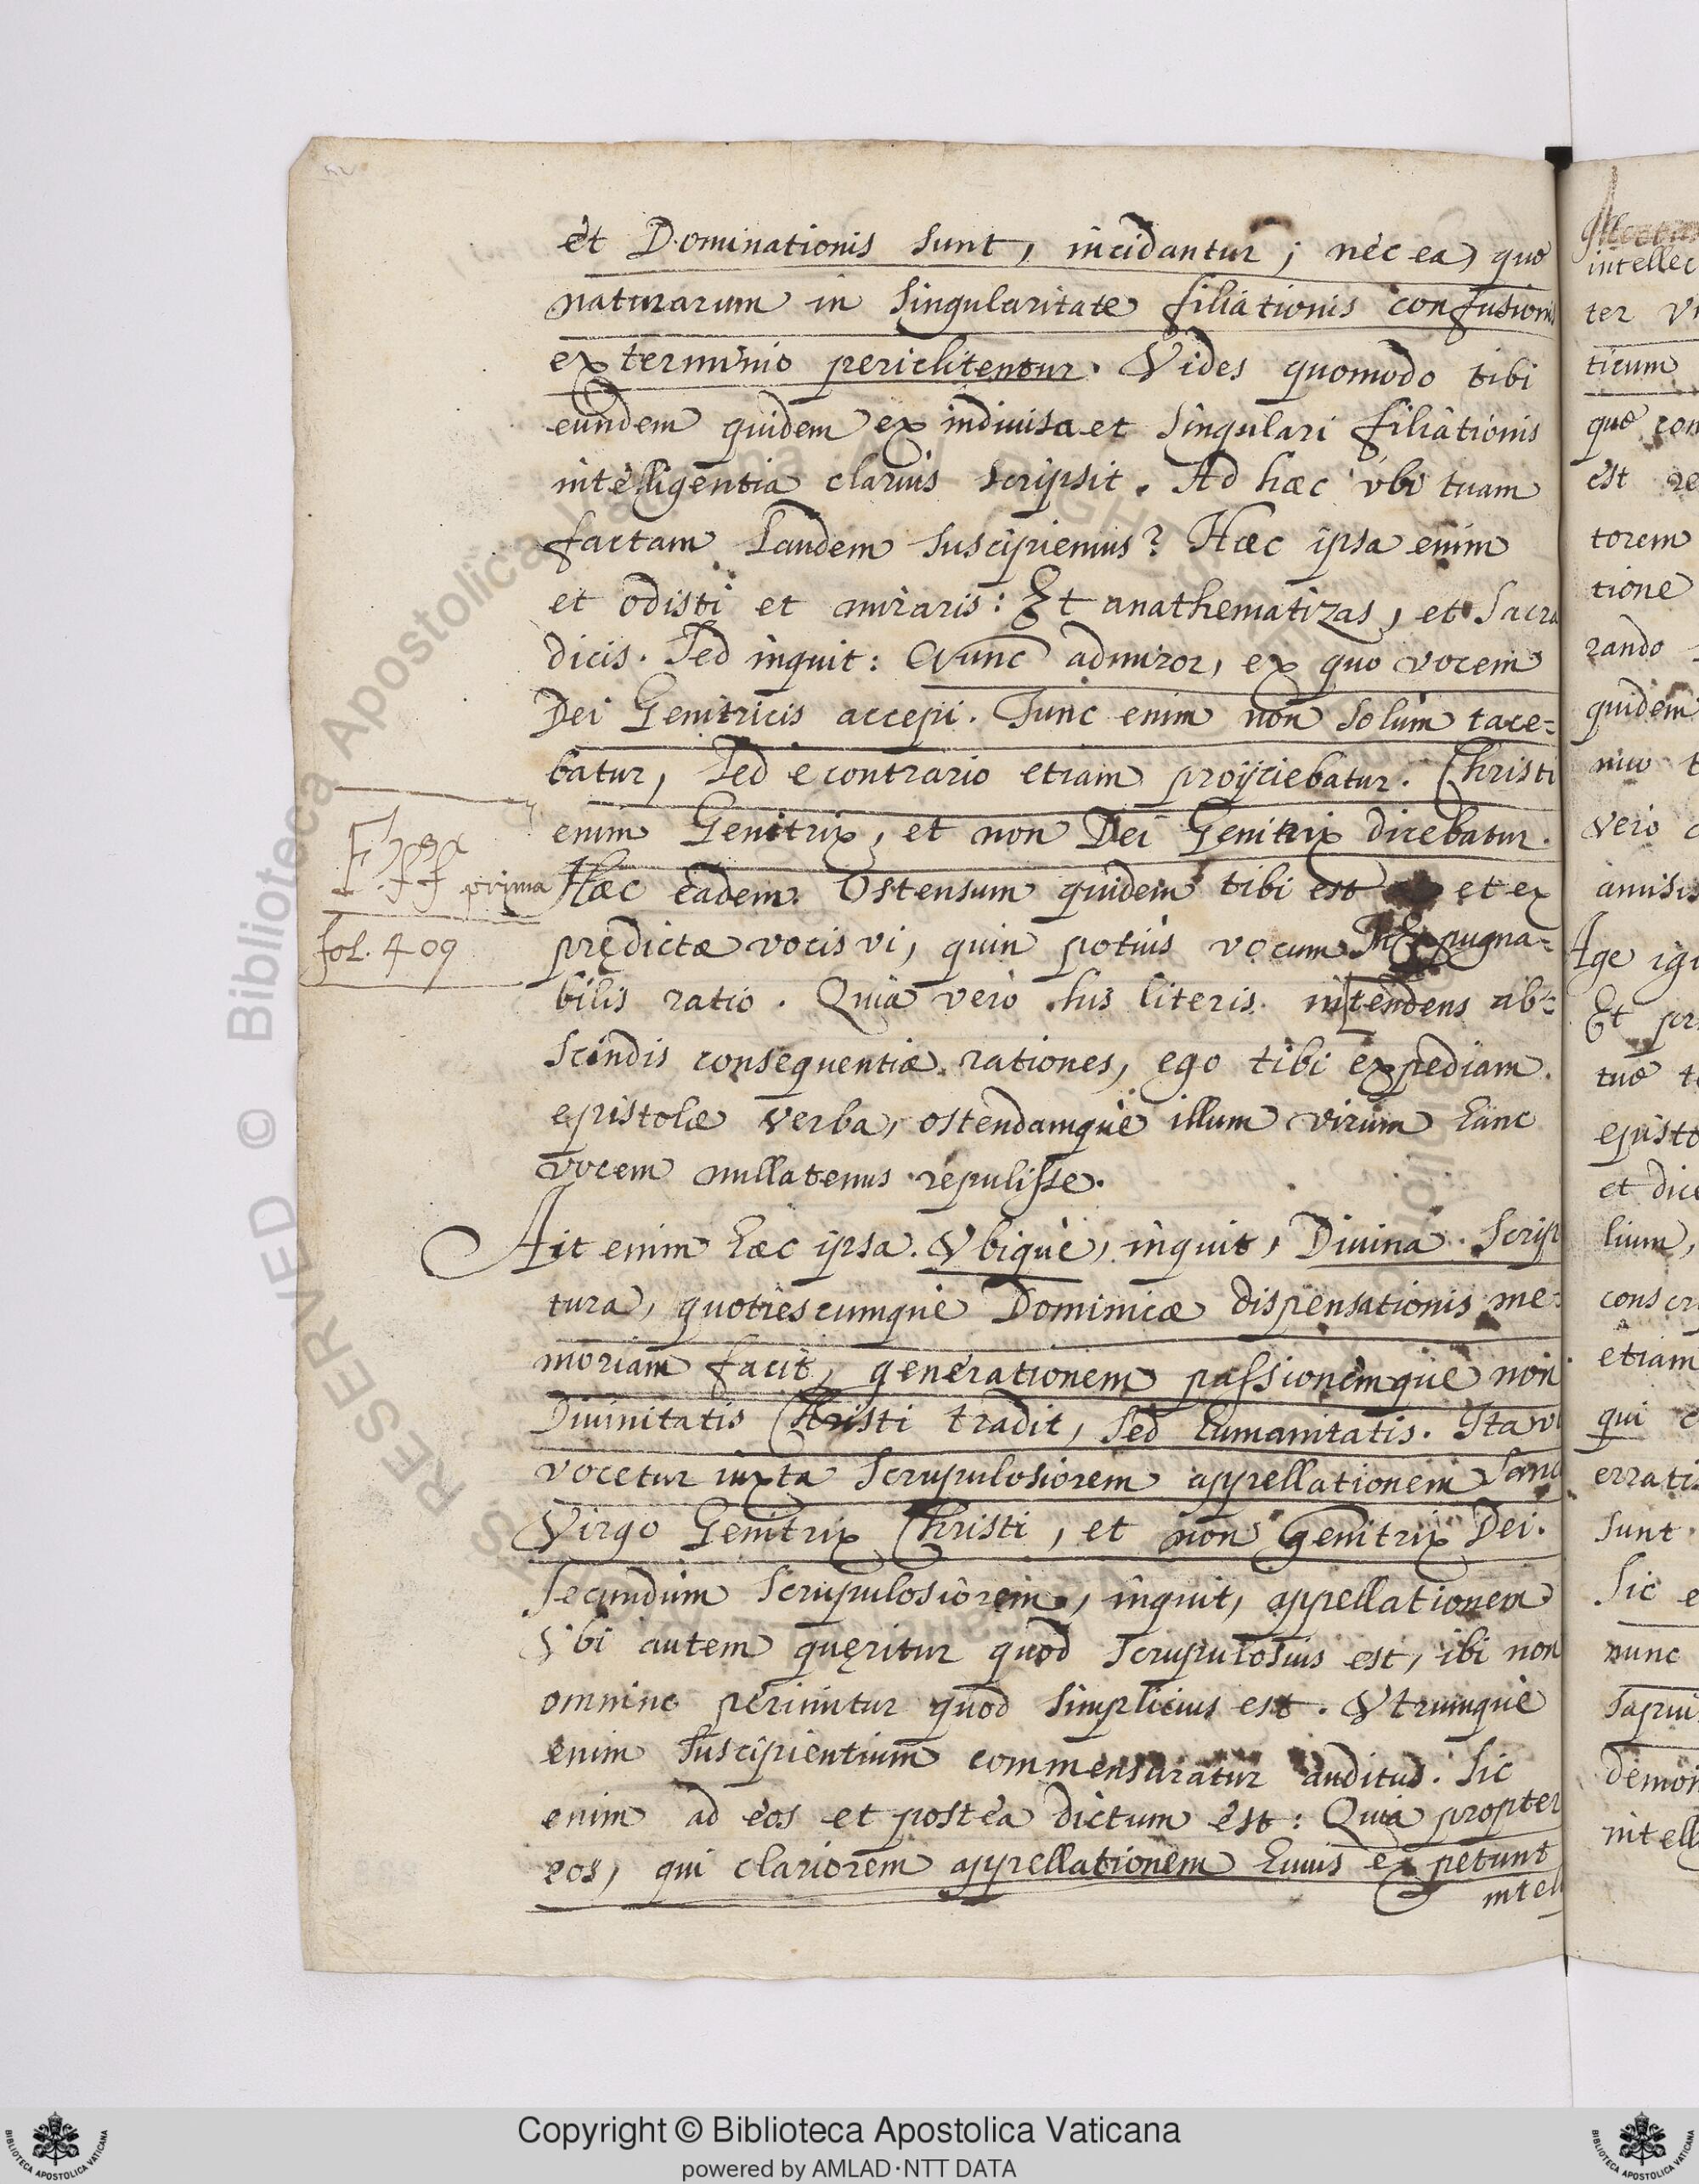 et Dominationis sunt, incidantur; nec ea, quæ
naturarum in singularitate filiationis confusionis
exterminio periclitentur. Vides quomodo tibi
eundem quidem ex indiuisa et singulari filiationis
intelligentia clarius scripsit. Ad hæc vbi tuam
factam laudem suscipiemus? Hæc ipsa enim
et odisti et miraris: Et anathematizas, et sacra
dicis. Sed inquit: Nunc admiror, ex quo vocem
Dei Genitricis accepi. Tunc enim non solùm tace=
batur, sed e contrario etiam proijciebatur. Christi
enim Genitrix, et non Dei Genitrix dicebatur.
Hæc eadem. Ostensum quidem tibi est et ex
prędictæ vocis vi, quin potius vocum pugna=
bilis ratio. Quia verò his literis intendens ab=
scindis consequentiæ rationes, ego tibi expediam
epistolæ verba, ostendamque illum virum hanc
vocem nullatenus repulisse.
Ait enim hæc ipsa. Vbique, inquit, Diuina Scrip
tura, quotiescumque Dominicæ dispensationis me=
moriam facit, generationem passionemque non
Diuinitatis Christi tradit, sed humanitatis. Ita vt
vocetur iuxta scrupulosiorem appellationem Sanc
Virgo Genitrix Christi, et non Genitrix Dei.
Secundùm scrupulosiorem, inquit, appellationem
Vbi autem quęritur quod scrupulosius est, ibi non
omnino perimitur quod simplicius est. Vtrumque
enim suscipientium commensuratur auditus. Sic
enim ad eos et postea dictum est: Quia propter
eos, qui clariorem appellationem huius expetunt
intell
prima
fol. 409
intellec
ter
ticum
quæ con
est re
torem
tione
rando
quidem
nuo
vero
amisis
Age igi
Et pri
tuæ
episto
et dice
lium,
conscri
etiam
qui
errati
sunt
Sic e
nunc
sapui
demon
intell
Copyright © Biblioteca Apostolica Vaticana
powered by AMLAD·NTT DATA